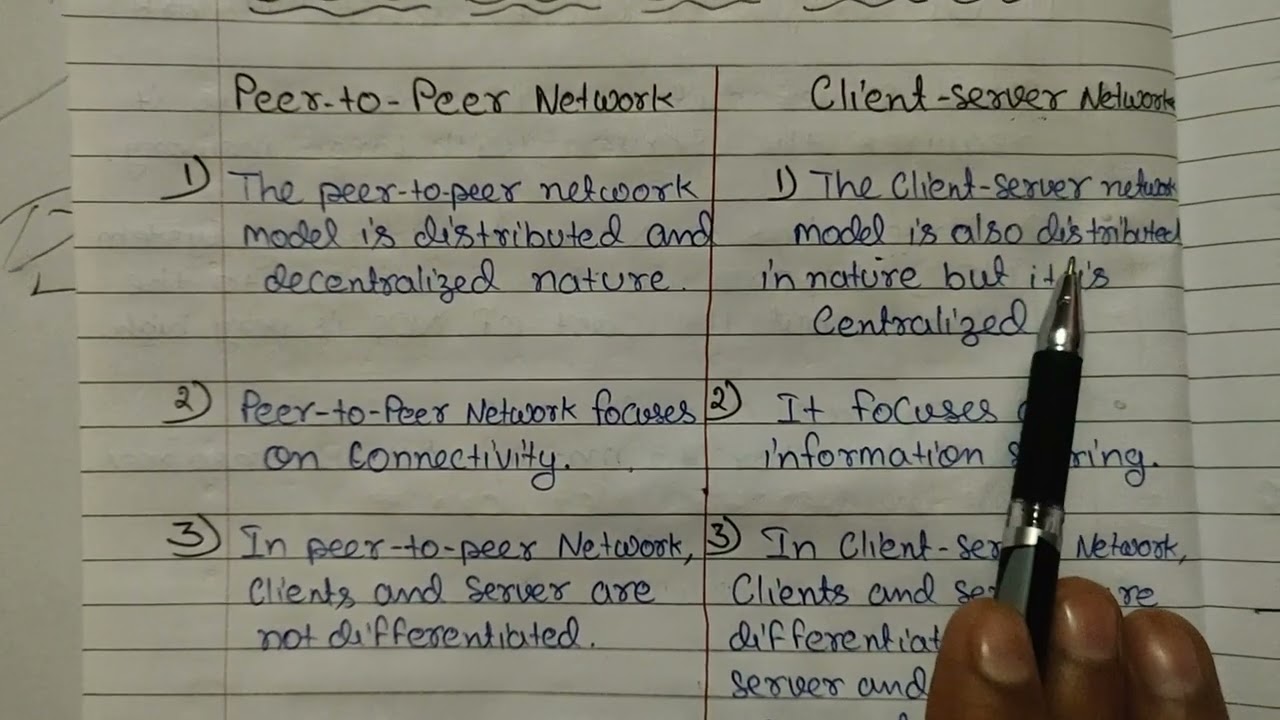 Peer-to-Peer Network
1) The peer-to-peer network
model is distributed and
decentralized nature.
2) Peer-to-Peer Network focuses
on connectivity.
3) In peer-to-peer Network,
Clients and server are
not differentiated.
Client-server Network
1) The Client-server network
model is also distributed
in nature but it is
Centralized
2) It focuses
information
3) In Client-ser Network,
Clients and
server and